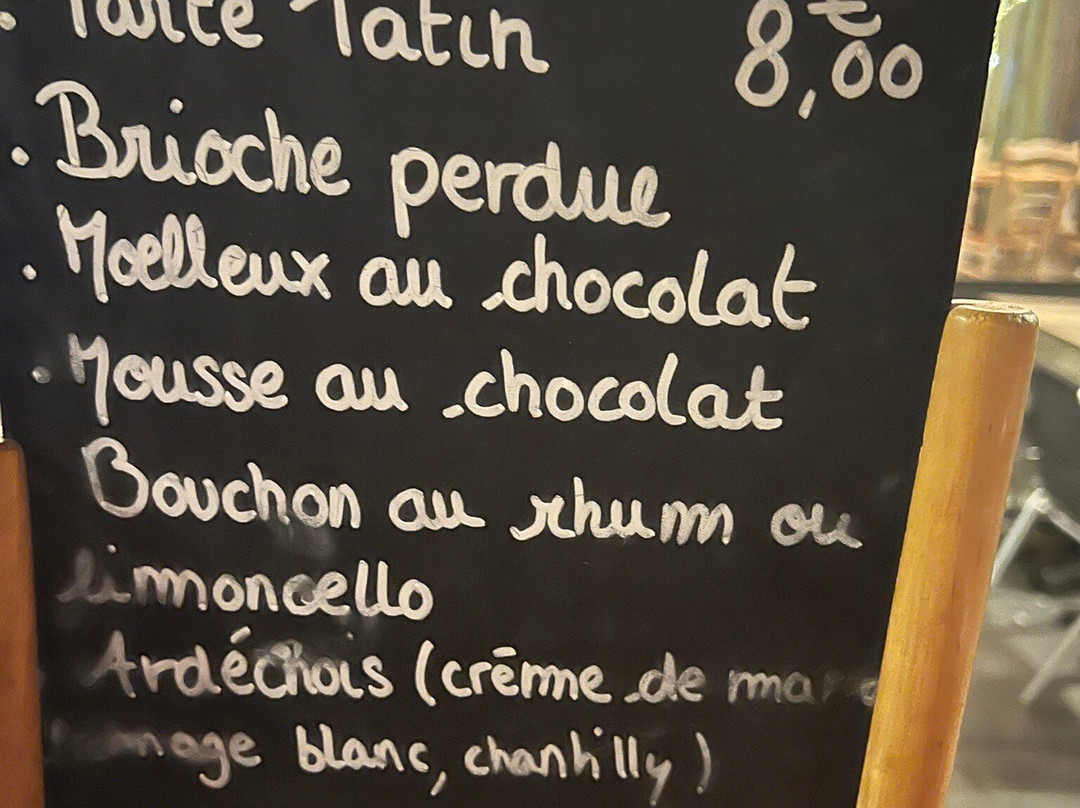 . Tarte Tatin 8,00€
. Brioche perdue
. Moelleux au chocolat
. Mousse au chocolat
Bouchon au rhum ou
limoncello
Ardéchois (crème de
blanc, chantilly)